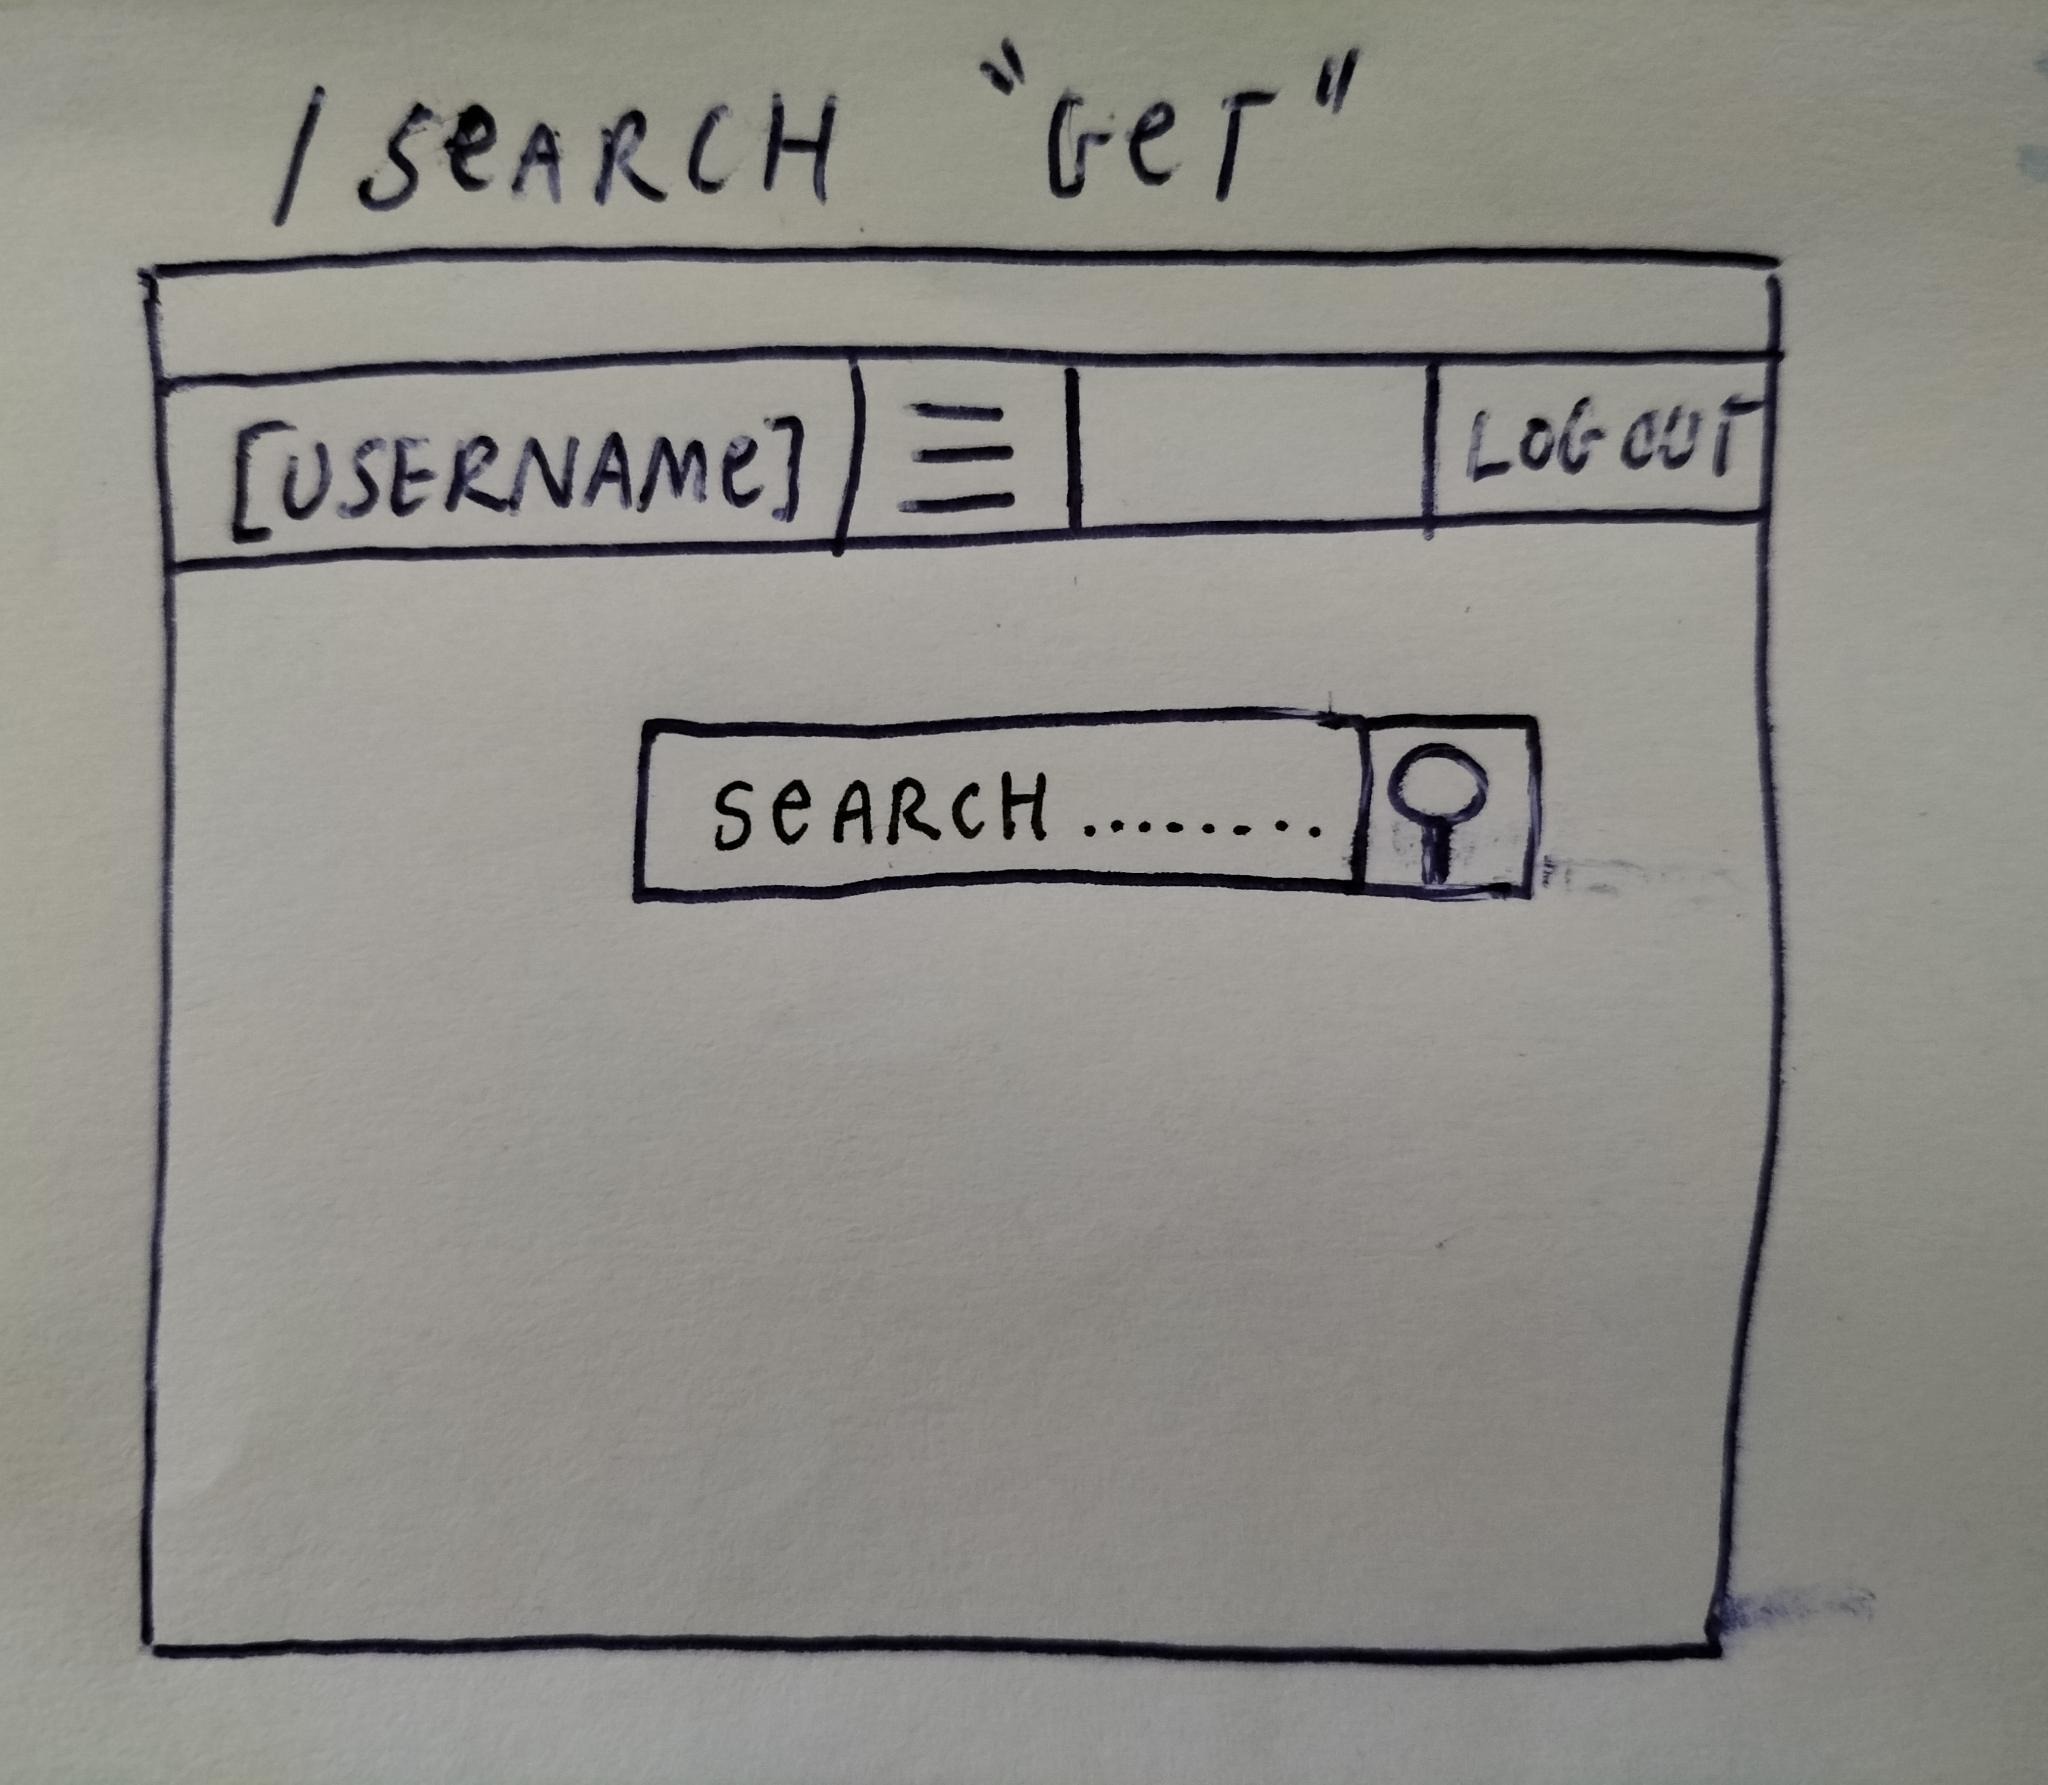 /SEARCH "GET"
[USERNAME] LOGOUT
SEARCH........